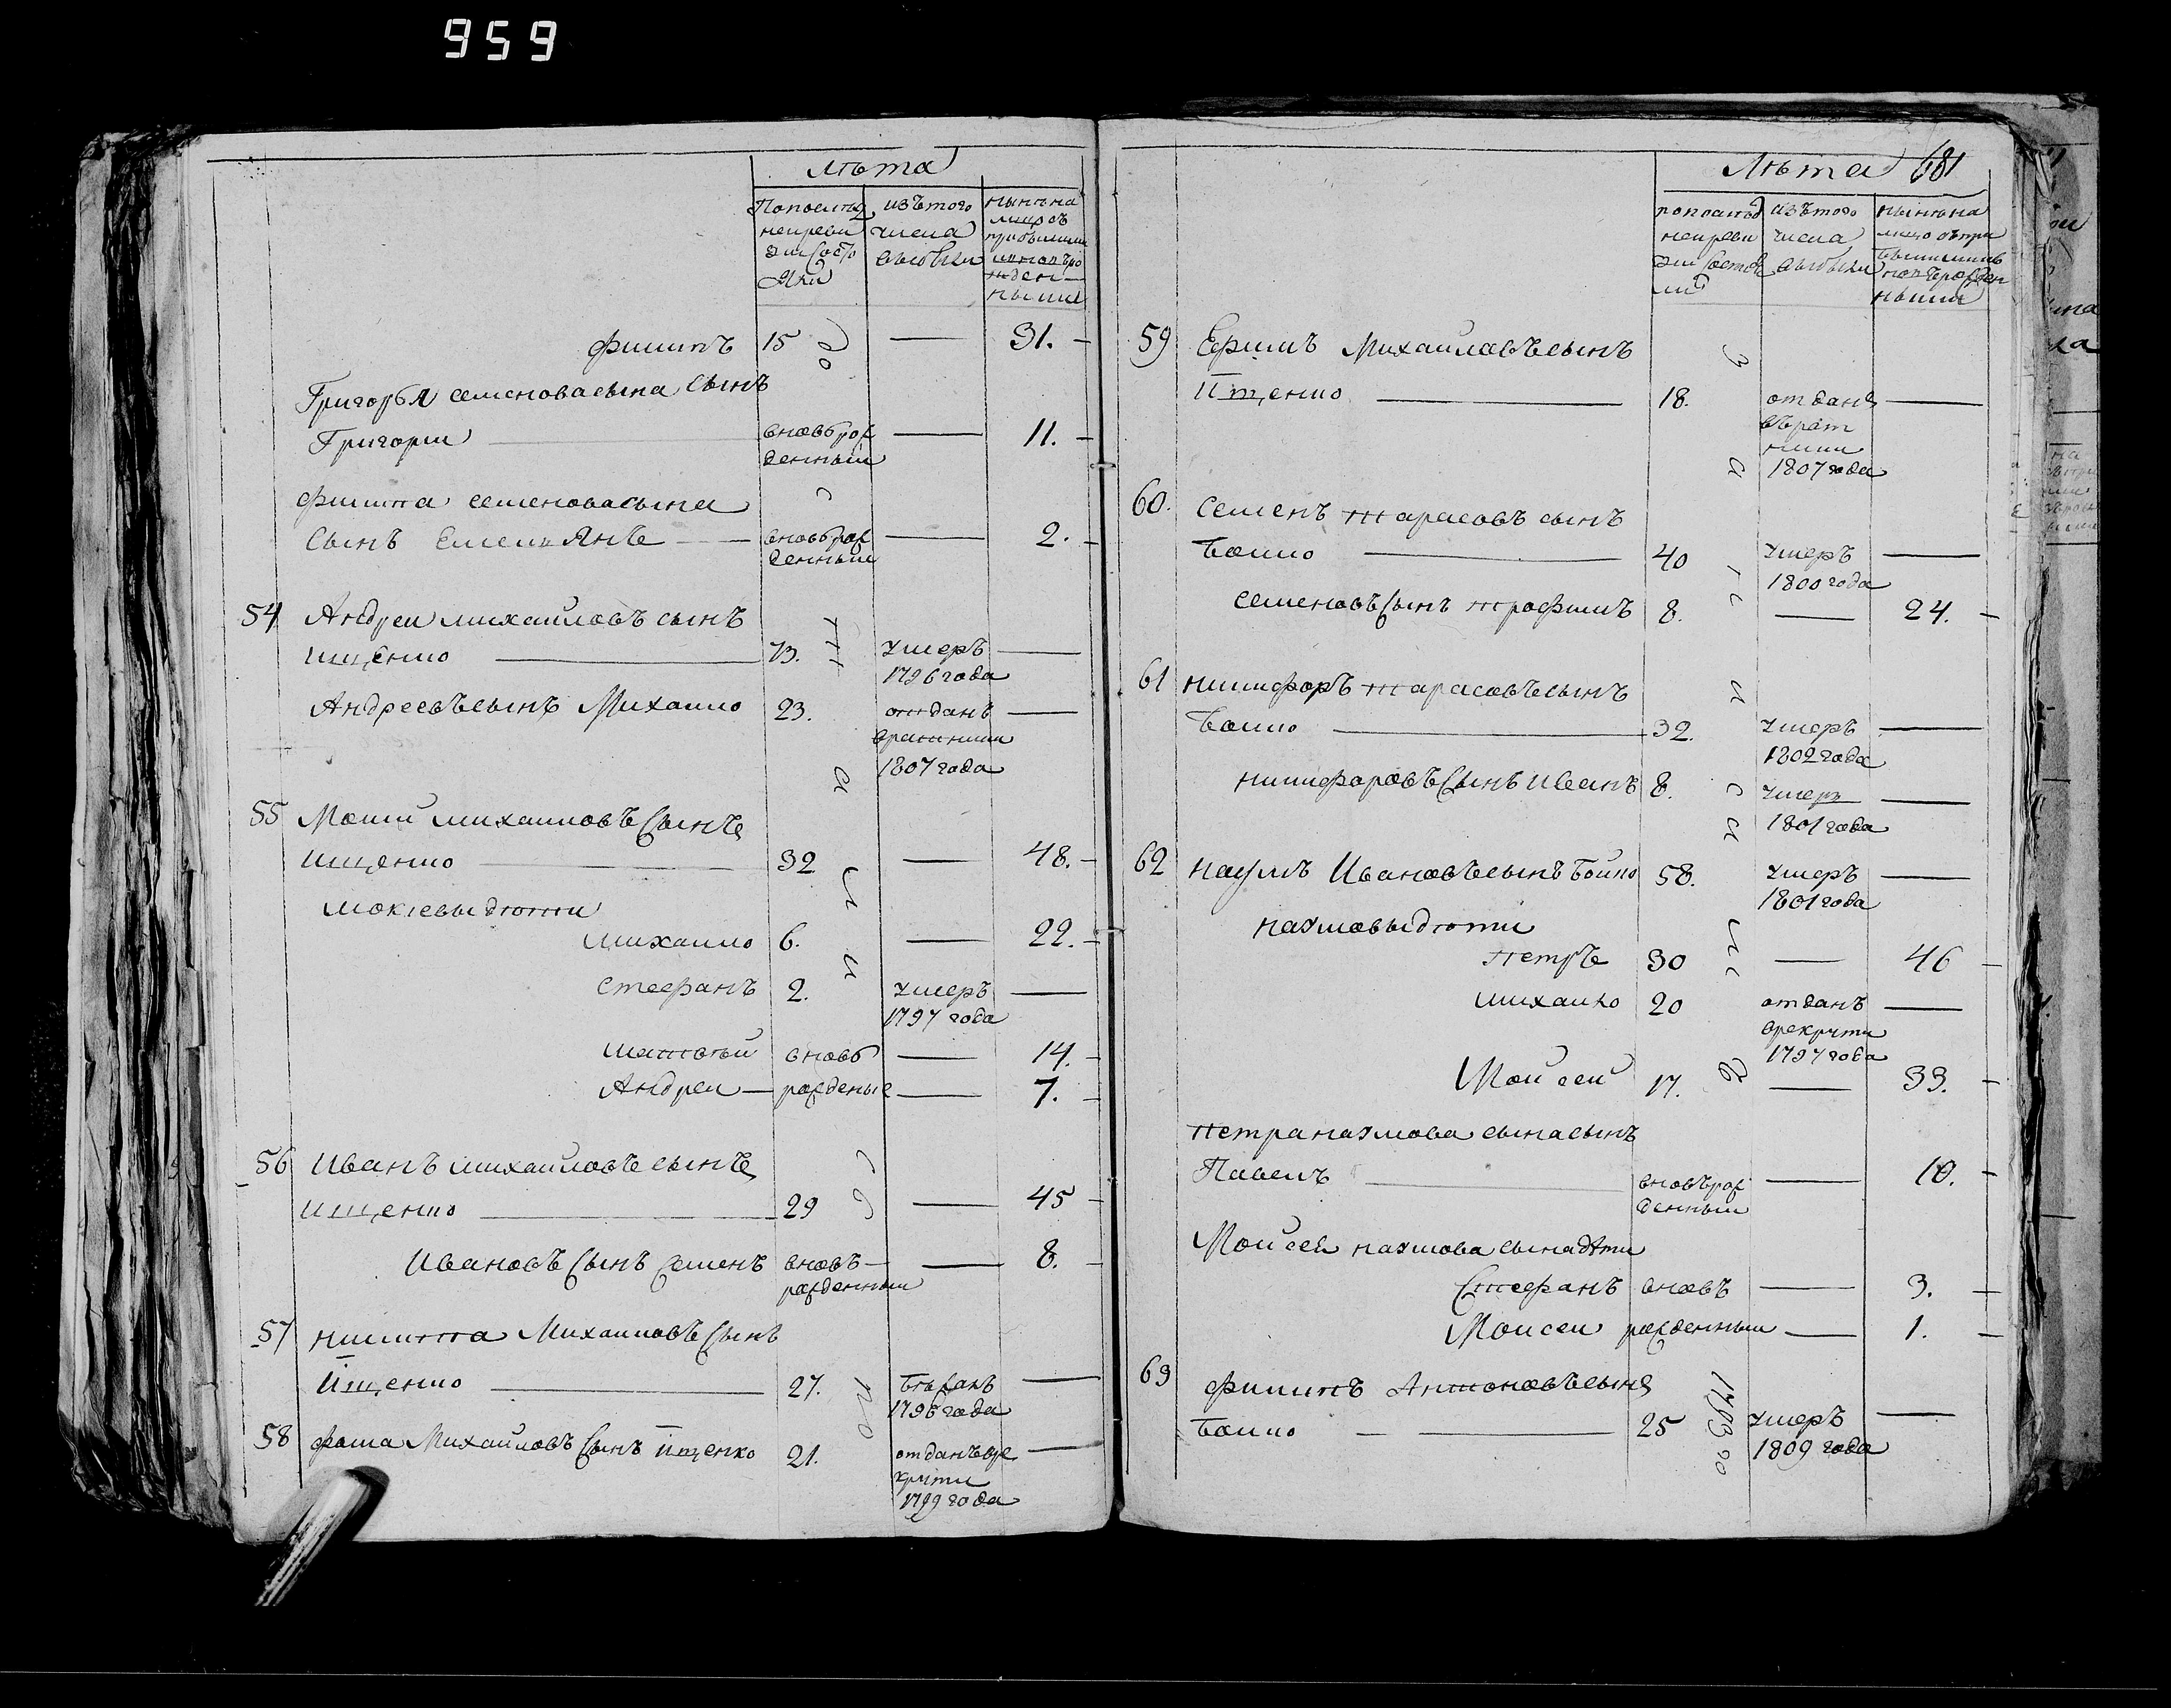 959
Лѣта
Попослѣд
неиреви
зіи состо
яли
изътого
числа
выбыли
нынѣна
лицосъ
прибылыми
иновъро
жден
ными
Филипъ 15 — 31.
Григорья семеновасына сынъ
Григорій вновьрож
денный — 11.
Филипа семеновасына
сынъ Емельянъ вноворож
денный — 2.
54 Андрей михайловъ сынъ
ищенко 73. умеръ
1796 года —
Андреевъсынъ Михайло 23. отданъ —
врекиты
1807 года
55 Мокій михайловъ сынъ
ищенко 32 — 48.
мокіевы дѣти
михайло 6. — 22.
стефанъ 2. умеръ —
1797 года
матвѣй вновь — 14.
Андрей — рожденые — 7.
56 Иванъ михайловъ сынъ
ищенко 29 — 45
Ивановъ сынъ семенъ вновъ — 8.
рожденный
57 никита Михайловъ сынъ
Ищенко 27. бѣжалъ —
1796 года
58 фома Михайловъ сынъ ищенко 21. отданъвре —
круты
1799 года
Лѣта 681
попослѣд
неиреви
зіи состоя
ли
изътого
числа
выбыли
нынѣна
лицо съпри
былымиив
новърожден
ными
59 Ефимъ Михайловъсынъ
Ищенко 18. отданъ —
1807 года
60. Семенъ тарасовъ сынъ
Бойко 40 умеръ —
1800 года
семеновъ сынъ трофимъ 8. — 24.
61 никифоръ тарасовъсынъ
Бойко 32. умеръ —
1802 года
никифоровъ сынъ иванъ 8. умеръ —
1801 года
62 наумъ Ивановъсынъ Бойко 58. умеръ —
1801 года
наумовы дѣти
петръ 30 — 46
михайло 20 отданъ —
врекруты
1797 года
Мойсей 17. — 33.
петра наумова сына сынъ
Павелъ вновърож
денный — 10.
Мойсея наумова сына дѣти
Стефанъ вновъ — 3.
Мойсей рожденный — 1.
63 филипъ Антоновъсынъ
Бойко 25 умеръ —
1809 года